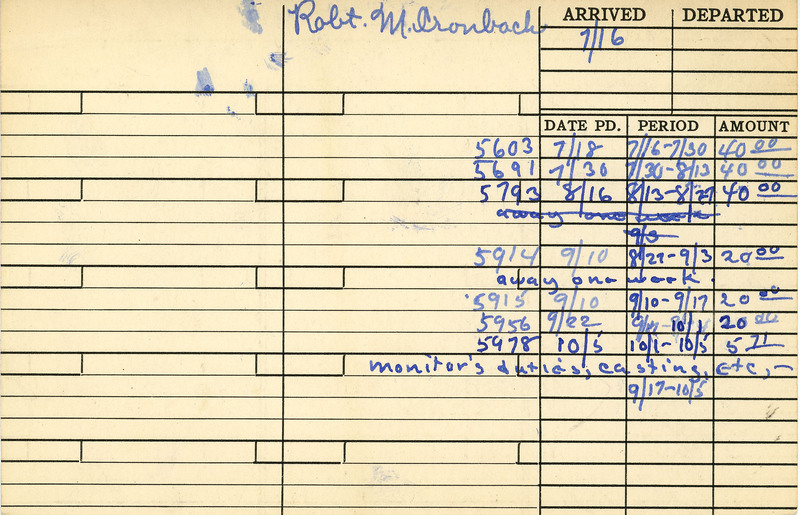 Robt. M. Cronbach
ARRIVED DEPARTED
7/16
DATE PD. PERIOD AMOUNT
5603 7/18 7/16-7/30 40 00
5691 7/30 7/30-8/13 40 00
5793 8/16 8/13-8/27 40 00
away one week
9/3
5914 9/10 8/27-9/3 20 00
away one week.
5915 9/10 9/10-9/17 20 00
5956 9/22 10/1 20 00
5978 10/5 10/1-10/5 5 71
monitor's duties, casting, etc, -
9/17-10/5